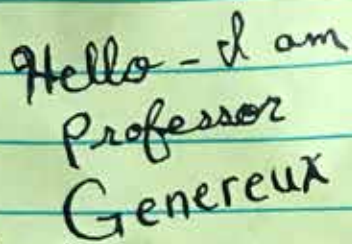 Hello - I am
Professor
Genereux